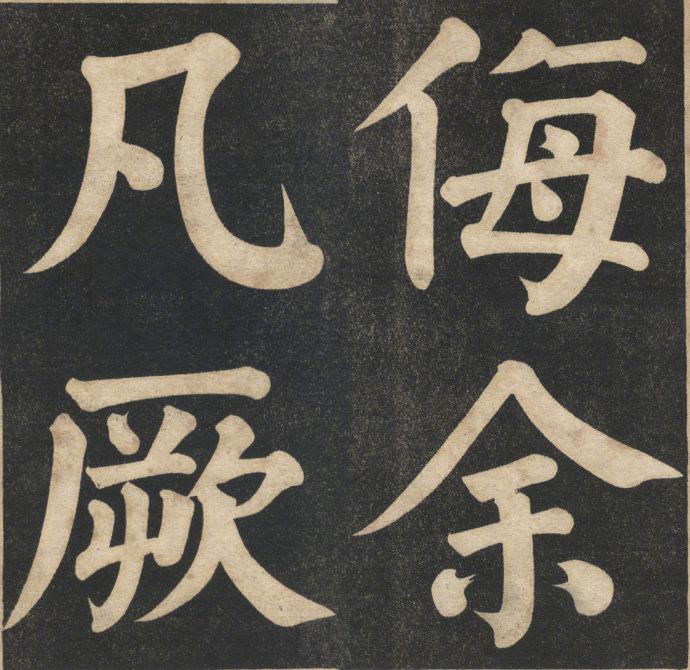 侮余
凡厥